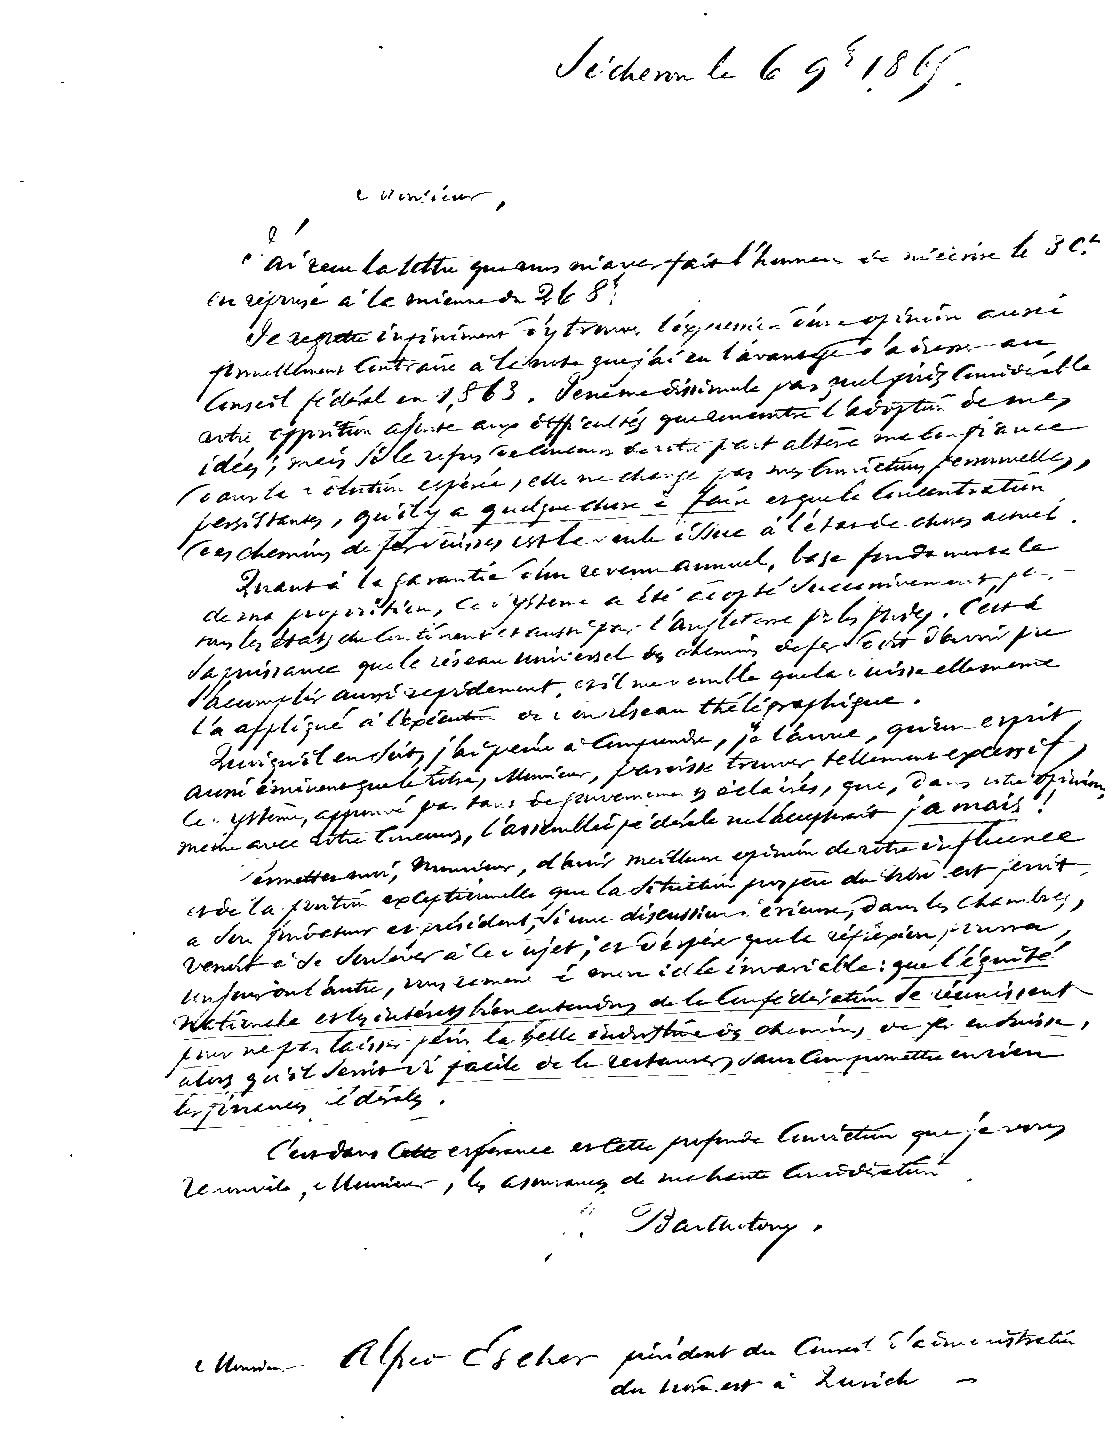 Sécheron le 6 9b 1865.
Monsieur,
J'ai reçu la lettre que vous m'avez fait l'honneur de m'écrire le 30 Ct
en réponse à la mienne du 26 8b
Je regrette infiniment d'y trouver l'expression d'une opinion aussi
formellement contraire à la note que j'ai eu l'avantage d'adresser au
Conseil fédéral en 1,863. Je ne me dissimule pas quel poids considérable
votre opposition ajoute aux difficultés que rencontre l'adoption de mes
idées; mais si le refus de concours de votre part altère ma confiance
dans la solution espérée, elle ne change pas mes convictions personnelles,
persistantes, qu'il y a quelque chose à faire et que la concentration
des chemins de fer suisses est la seule issue à l'état de choses actuel.
Quant à la garantie d'un revenu annuel, base fondamentale
de ma proposition, ce système a été adopté successivement par
tous les états du continent et aussi par l'Angleterre pr les Indes. C'est à
sa puissance que le réseau universel des chemins de fer doit d'avoir pu
s'accomplir aussi rapidement, et il me semble que la suisse elle même
l'a appliqué à l'exécution de son réseau thélégraphique.
Quoiqu'il en soit, j'ai peine à comprendre, je l'avoue, qu'un esprit
aussi éminent que le vôtre, Monsieur, puisse trouver tellement excessif,
ce système, approuvé par tant de gouvernemens éclairés, que, dans votre opinion,
même avec votre concours, l'assemblée fédérale ne l'accepterait jamais!
Permettez moi, Monsieur, d'avoir meilleure opinion de votre influence
et de la portée exceptionnelle que la situation prospère du Nord est ferait
à son fondateur et président, si une discussion sérieuse, dans les chambres,
venait à se soulever à ce sujet; et d'espérer que la réflexion pourra,
un jour ou l'autre, vous ramener à mon idée invariable: que l'équité
nationale et les intérêts bien entendus de la Confédération se réunissent
pour ne pas laisser périr la belle industrie des chemins de fer en Suisse,
alors qu'il serait si facile de la restaurer, sans compromettre en rien
les finances fédérales.
C'est dans cette espérance et cette profonde conviction que je vous
renouvelle, Monsieur, les assurances de ma haute considération
Bartholony.
Monsieur Alfred Escher président du Conseil d'administration
du Nord est à Zurich